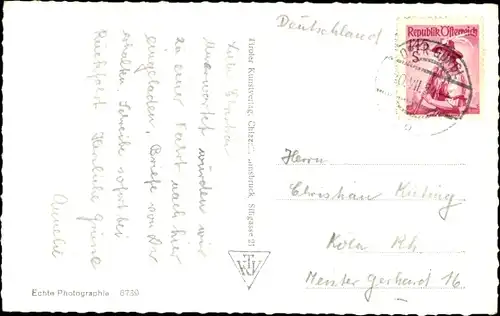 Deutschland
Republik Österreich
Unerwartet wurden wir
zu einer Fahrt nach hier
eingeladen, Briefe von Dir
erhalten. Schreibe sofort bei
Rückfahrt Herzliche Grüsse
Tiroler Kunstverlag, Chizzali, Innsbruck, Sillgasse 21
Herrn
Christian
Köln Rh.
Meister Gerhard 16
Echte Photographie 6739